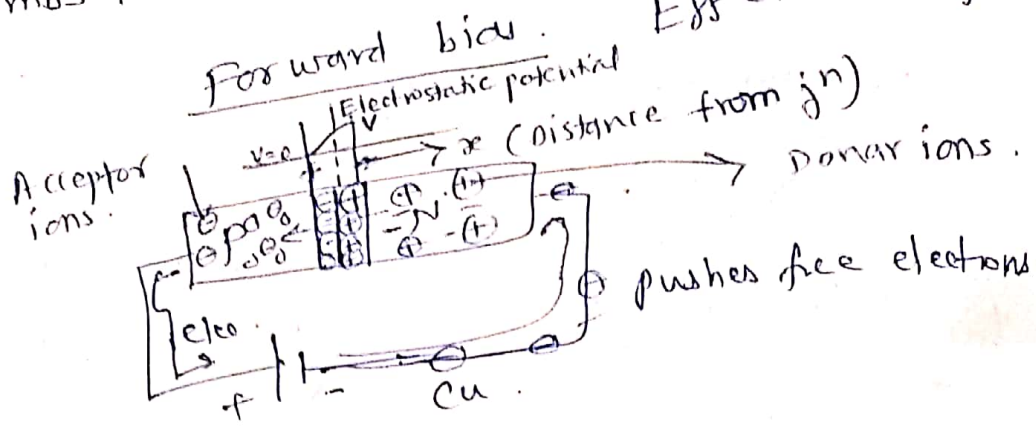 Forward bias.
Electrostatic potential
V
V=0
x (Distance from jn)
Acceptor
ions.
Donar ions.
P
N
pushes free electrons
elec
+
-
Cu.